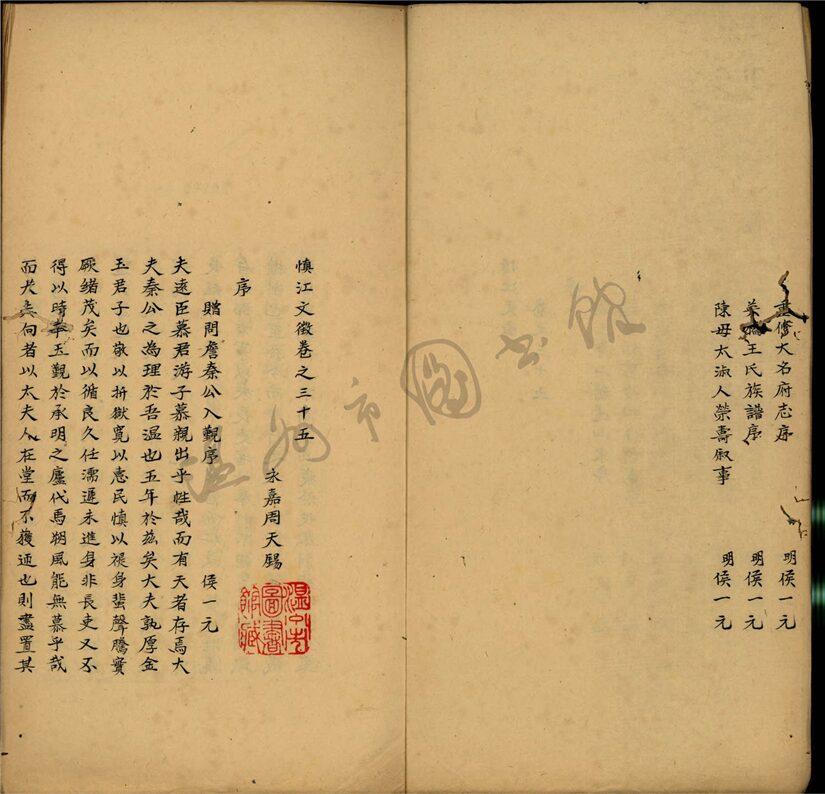 重修大名府志序 明侯一元
王氏族譜序 明侯一元
陳母太淑人榮壽敘事 明侯一元
慎江文徵卷之三十五
永嘉周天賜
序
贈問詹秦公入覲序 侯一元
夫逺臣慕君游子慕親出乎性哉而有天者存焉大
夫秦公之為理於吾溫也五年於茲矣大夫孰厚金
玉君子也敬以折獄寬以惠民慎以褆身蜚聲騰實
厥緒茂矣而以循良久任濡遲未進身非長吏又不
得以時奉玉覲於承明之廬代馬朔風能無慕乎哉
而犬向者以太夫人在堂而不獲迎也則盡置其
溫州市圖書館
溫州市圖書館藏